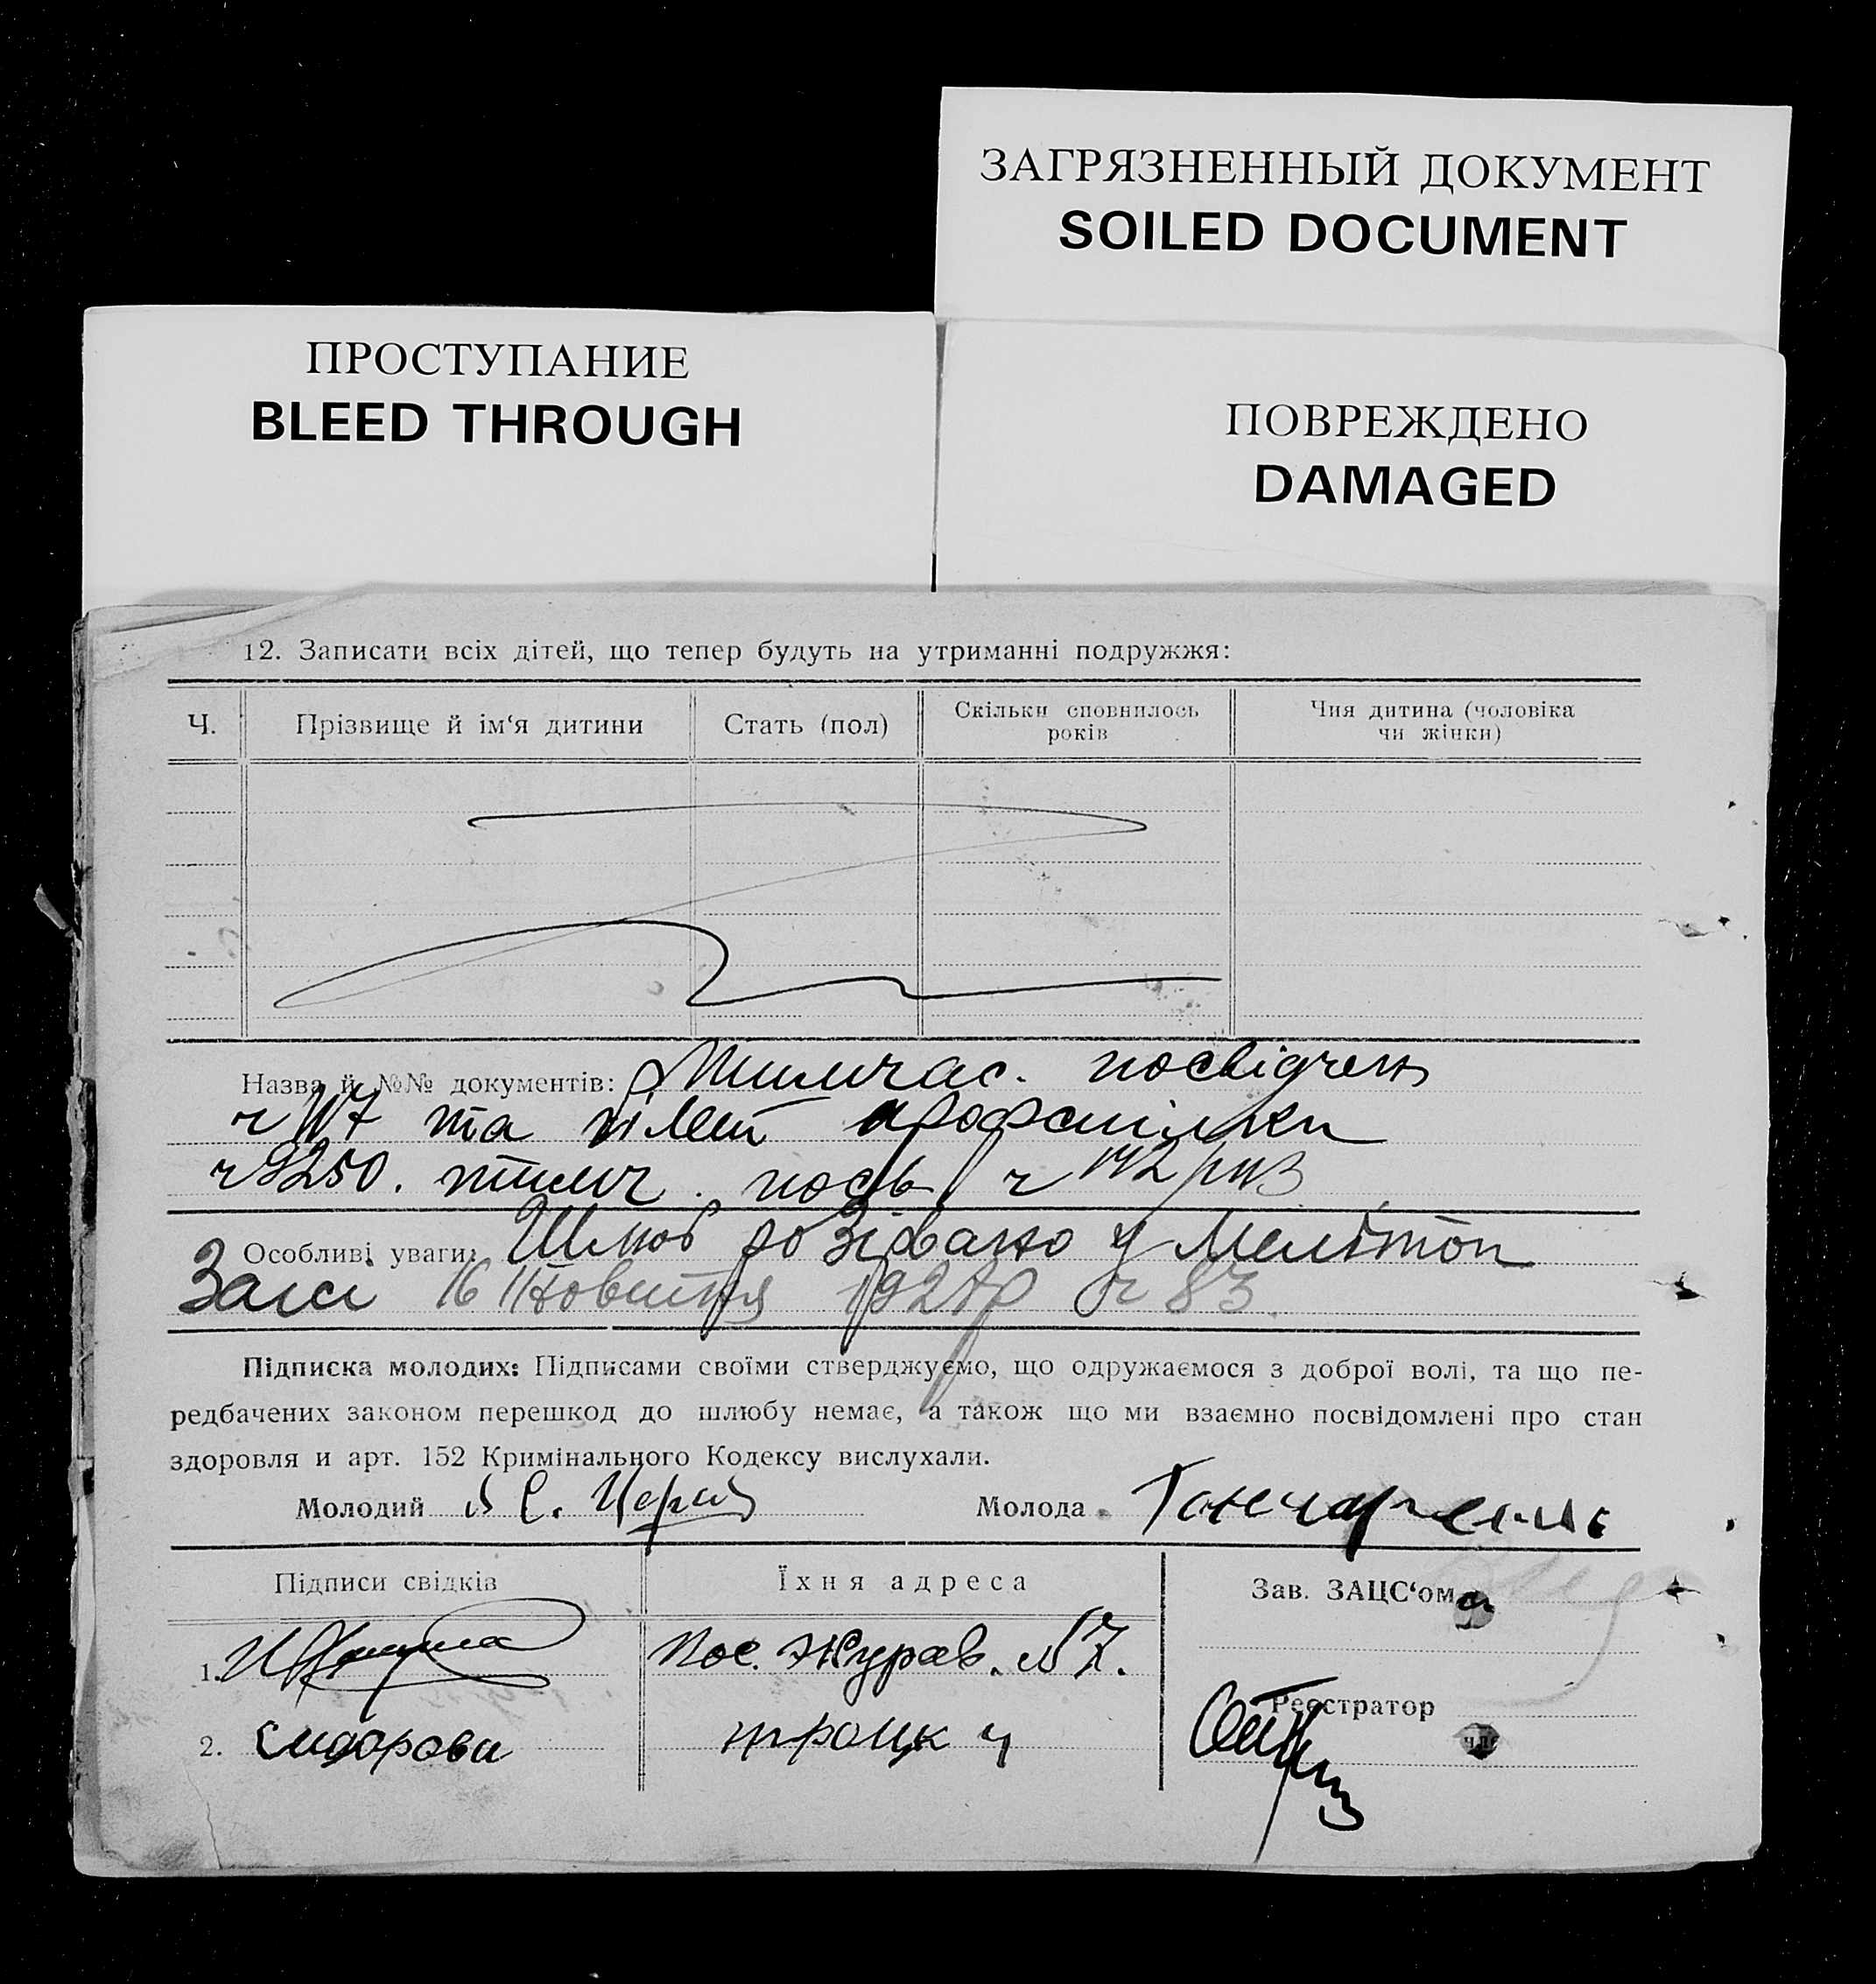 ЗАГРЯЗНЕННЫЙ ДОКУМЕНТ
SOILED DOCUMENT
ПРОСТУПАНИЕ
BLEED THROUGH
ПОВРЕЖДЕНО
DAMAGED
12. Записати всіх дітей, що тепер будуть на утриманні подружжя:
Ч. Прізвище й ім‘я дитини Стать (пол) Скільки сповнилось років Чия дитина (чоловіка чи жінки)
Назва й №№ документів: Тимчас. посвідчен
та білет профспілки
ч 9250. тимч. посв. ч
Особливі уваги: Шлюб розірвано у Мелітоп
Загсі 16 Жовтня 192 р ч 83.
Підписка молодих: Підписами своїми стверджуємо, що одружаємося з доброї волі, та що пе-
редбачених законом перешкод до шлюбу немає, а також що ми взаємно посвідомлені про стан
здоровля и арт. 152 Кримінального Кодексу вислухали.
Молодий Молода Гончаренко
Підписи свідків Їхня адреса Зав. ЗАЦС‘ом
1. Пос. Журав. №7.
Реєстратор
2. Сидорова троцк 4